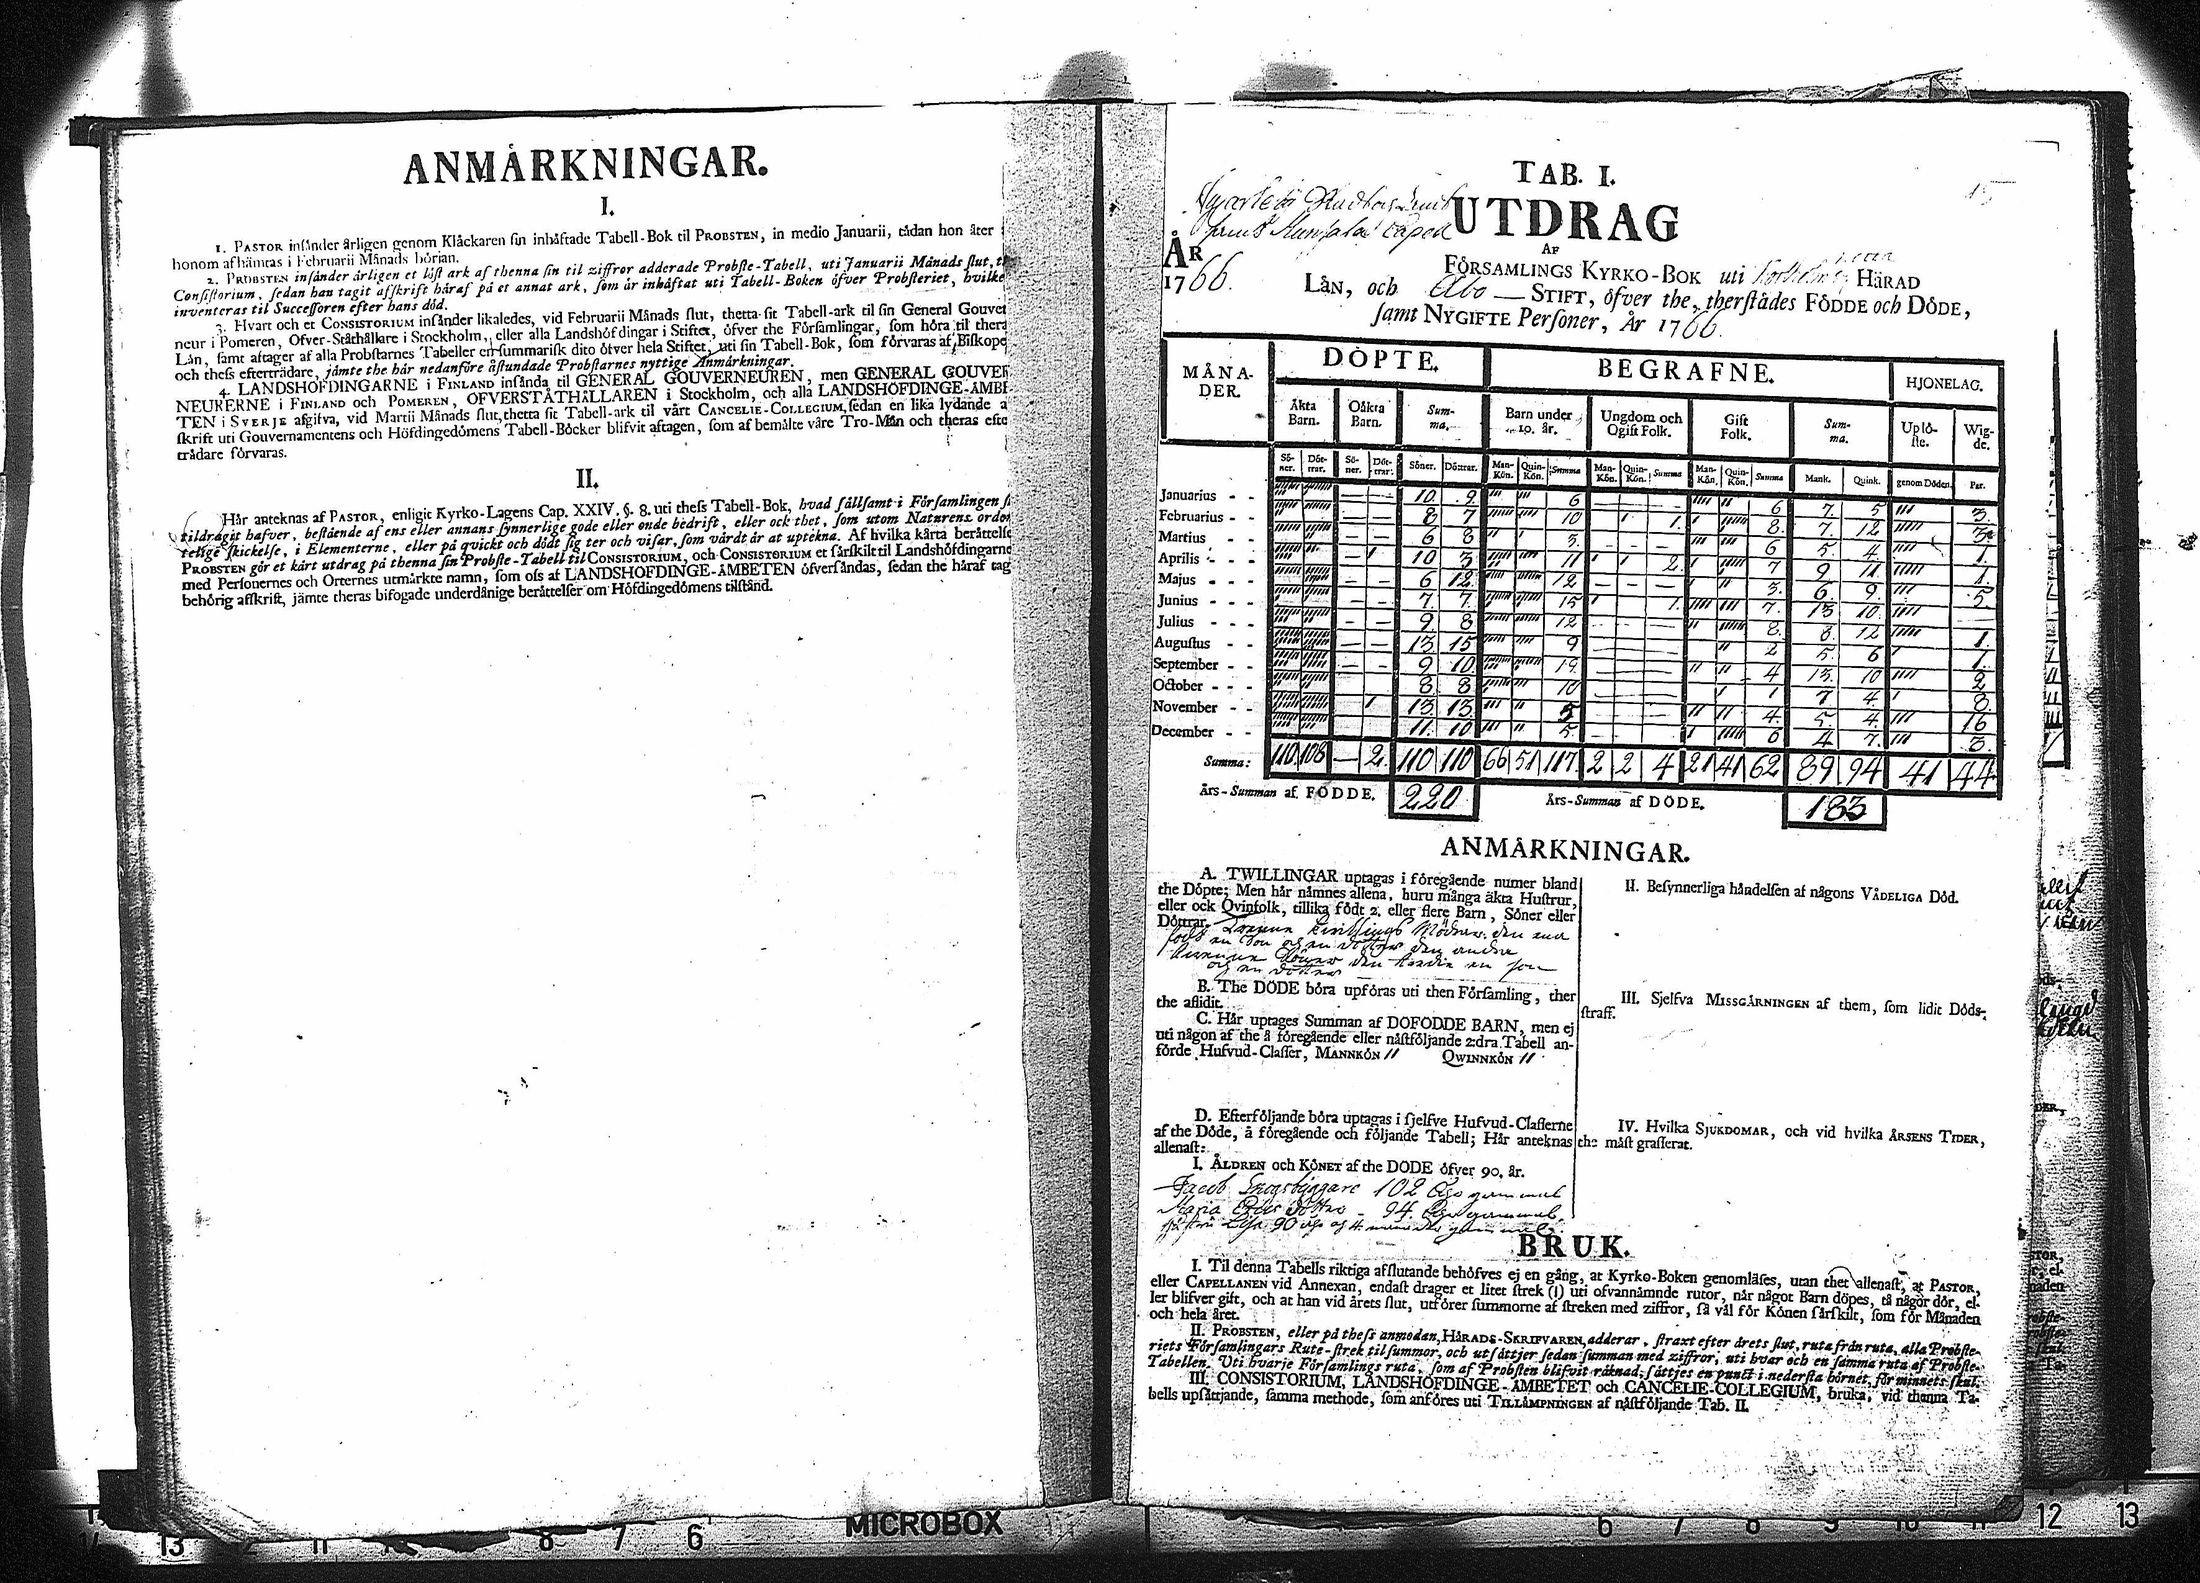 ANMÅRKNINGAR.
I.
1. PASTOR insånder årligen genom Klåckaren sin inhåftade Tabell-Bok til PROBSTEN, in medio Januarii, tådan hon åter
honom afhåmtas i Februarii Månads början.
2. PROBSTEN insånder årligen et löst ark af thenna sin til ziffror adderade Probste-Tabell, uti Januarii Månads slut,
Consistorium, sedan han tagit afskrift håraf på et annat ark, som år inhåftat uti Tabell-Boken öfver Probsteriet, hvilke
inventeras til Successoren efter hans död.
3. Hvart och et CONSISTORIUM insånder likaledes, vid Februarii Månads slut, thetta sit Tabell-ark til sin General Gouver
neur i Pomeren, Ofver-Ståthållare i Stockholm, eller alla Landshöfdingar i Stiftet, öfver the Församlingar, som höra til thera
Lån, samt aftager af alla Probstarnes Tabeller en summarisk dito öfver hela Stiftet, uti sin Tabell-Bok, som förvaras af Biskope
och thess efterträdare, jåmte the hår nedanföre åstundade Probstarnes nyttige Anmårkningar.
4. LANDSHÖFDINGARNE i FINLAND insånda til GENERAL GOUVERNEUREN, men GENERAL GOUVER
NEURERNE i FINLAND och POMEREN, OFVERSTÅTHÅLLAREN i Stockholm, och alla LANDSHÖFDINGE-ÅMBE-
TEN i SVERJE afgifva, vid Martii Månads slut, thetta sit Tabell-ark til vårt CANCELIE-COLLEGIUM, sedan en lika lydande a
skrift uti Gouvernamentens och Höfdingedömens Tabell-Böcker blifvit aftagen, som af bemålte våre Tro-Mån och theras efte
trådare förvaras.
II.
Hår anteknas af PASTOR, enligit Kyrko-Lagens Cap. XXIV. §. 8. uti thess Tabell-Bok, hvad sållsamt i Församlingen
tildragit hafver, bestående af ens eller annans synnerlige gode eller onde bedrift, eller ock thet, som utom Naturens ordo
telige skickelse, i Elementerne, eller på qvickt och dödt sig ter och visar, som vårdt år at uptekna. Af hvilka kårta beråttelse
PROBSTEN gör et kårt utdrag på thenna sin Probste-Tabell til CONSISTORIUM, och CONSISTORIUM et sårskilt til Landshöfdingarne
med Personernes och Orternes utmårkte namn, som oss af LANDSHÖFDINGE-ÅMBETEN öfversåndas, sedan the håraf tag
behörig afskrift, jåmte theras bifogade underdånige beråttelser om Höfdingedömens tilstånd.
TAB. I.
UTDRAG
AF
ÅR
1766.
FÖRSAMLINGS KYRKO-BOK uti HÅRAD
LÅN, och Åbo STIFT, öfver the, therstådes FÖDDE och DÖDE,
samt NYGIFTE Personer, År 1766.
MÅNA-DER. DÖPTE. BEGRAFNE. HJONELAG.
Åkta Barn. Oåkta Barn. Sum-ma. Barn under 10. år. Ungdom och Ogift Folk. Gift Folk. Sum-ma. Uplö-ste. Wig-de.
Sö-ner. Döt-trar. Sö-ner. Döt-trar. Söner. Döttrar. Man-Kön. Quin-Kön. Summa Man-Kön. Quin-Kön. Summa Man-Kön. Quin-Kön. Summa Mank. Quink. genom Döden. Par.
Januarius - - 10. 9. 6 6 7. 5 3.
Februarius - - 8 7 10 1. 8. 7. 12 3.
Martius - - 6 8 3. 6 5. 4
Aprilis - - 10 3 11 2. 7 9 11. 1.
Majus - - - 6 12 12 3. 6. 9. 1.
Junius - - - 7. 7. 15 1. 7. 13 10. 5
Julius - - - 9 8 12 8. 8. 12
Augustus - - 13 15 9 2 5. 6 1.
September - - 9 10. 19. 4 13. 10 1.
October - - - 8 8 10 1 7 4. 2
November - - 13. 13. 5 4. 5. 4. 8.
December - - 11. 10 5. 6 4 7. 16
3.
Summa: 110 108 — 2. 110 110 66 51 117 2 2 4 21 41 62 89 94 41 44
Års-Summan af FÖDDE. 220 Års-Summan af DÖDE. 183
ANMÅRKNINGAR.
A. TWILLINGAR uptagas i föregående numer bland
the Döpte; Men hår nåmnes allena, huru många åkta Hustrur,
eller ock Qvinfolk, tillika födt 2. eller flere Barn, Söner eller
Döttrar.
B. The DÖDE böra upföras uti then Församling, ther
the aflidit.
C. Hår uptages Summan af DÖFÖDDE BARN, men ej
uti någon af the å föregående eller nåstföljande 2:dra Tabell an-
förde Hufvud-Classer, MANNKÖN // QWINNKÖN //
D. Efterföljande böra uptagas i sjelfve Hufvud-Classerne
af the Döde, å föregående och följande Tabell; Hår anteknas
allenast:
I. ÅLDREN och KÖNET af the DÖDE öfver 90. år.
Jacob Skogsbyggare 102 åhr gammal
Maria 94. åhr gammal
II. Besynnerliga håndelsen af någons VÅDELIGA Död.
III. Sjelfva MISSGÅRNINGEN af them, som lidit Döds-
straff.
IV. Hvilka SJUKDOMAR, och vid hvilka ÅRSENS TIDER,
the måst grasserat.
BRUK.
I. Til denna Tabells riktiga afslutande behöfves ej en gång, at Kyrko-Boken genomlåses, utan thet allenast, at PASTOR,
eller CAPELLANEN vid Annexan, endast drager et litet strek (|) uti ofvannåmnde rutor, når något Barn döpes, tå någor dör, el-
ler blifver gift, och at han vid årets slut, utförer summorne af streken med ziffror, så vål för Könen sårskilt, som för Månaden
och hela året.
II. PROBSTEN, eller på thess anmodan, HÅRADS-SKRIFVAREN, adderar, straxt efter årets slut, ruta från ruta, alla Probste-
riets Församlingars Rute-strek til summor, och utsåttjer sedan summan med ziffror, uti hvar och en samma ruta af Probste-
Tabellen. Uti hvarje Församlings ruta, som af Probsten blifvit råknad, såttjes en punct i nedersta hörnet, för minnets skul.
III. CONSISTORIUM, LANDSHÖFDINGE-ÅMBETET och CANCELIE-COLLEGIUM, bruka, vid thenna Ta-
bells upsåttjande, samma methode, som anföres uti TILLÅMPNINGEN af nåstföljande Tab. II.
MICROBOX